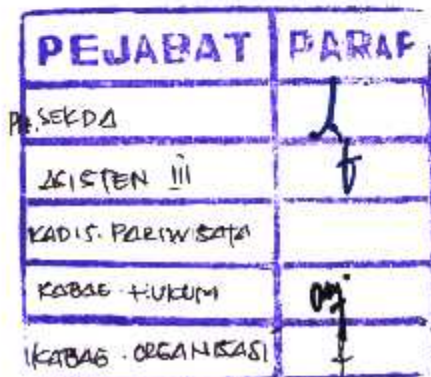 PEJABAT PARAF
Plt. SEKDA
ASISTEN III
KADIS. PARIWISATA
KABAG HUKUM
KABAG. ORGANISASI